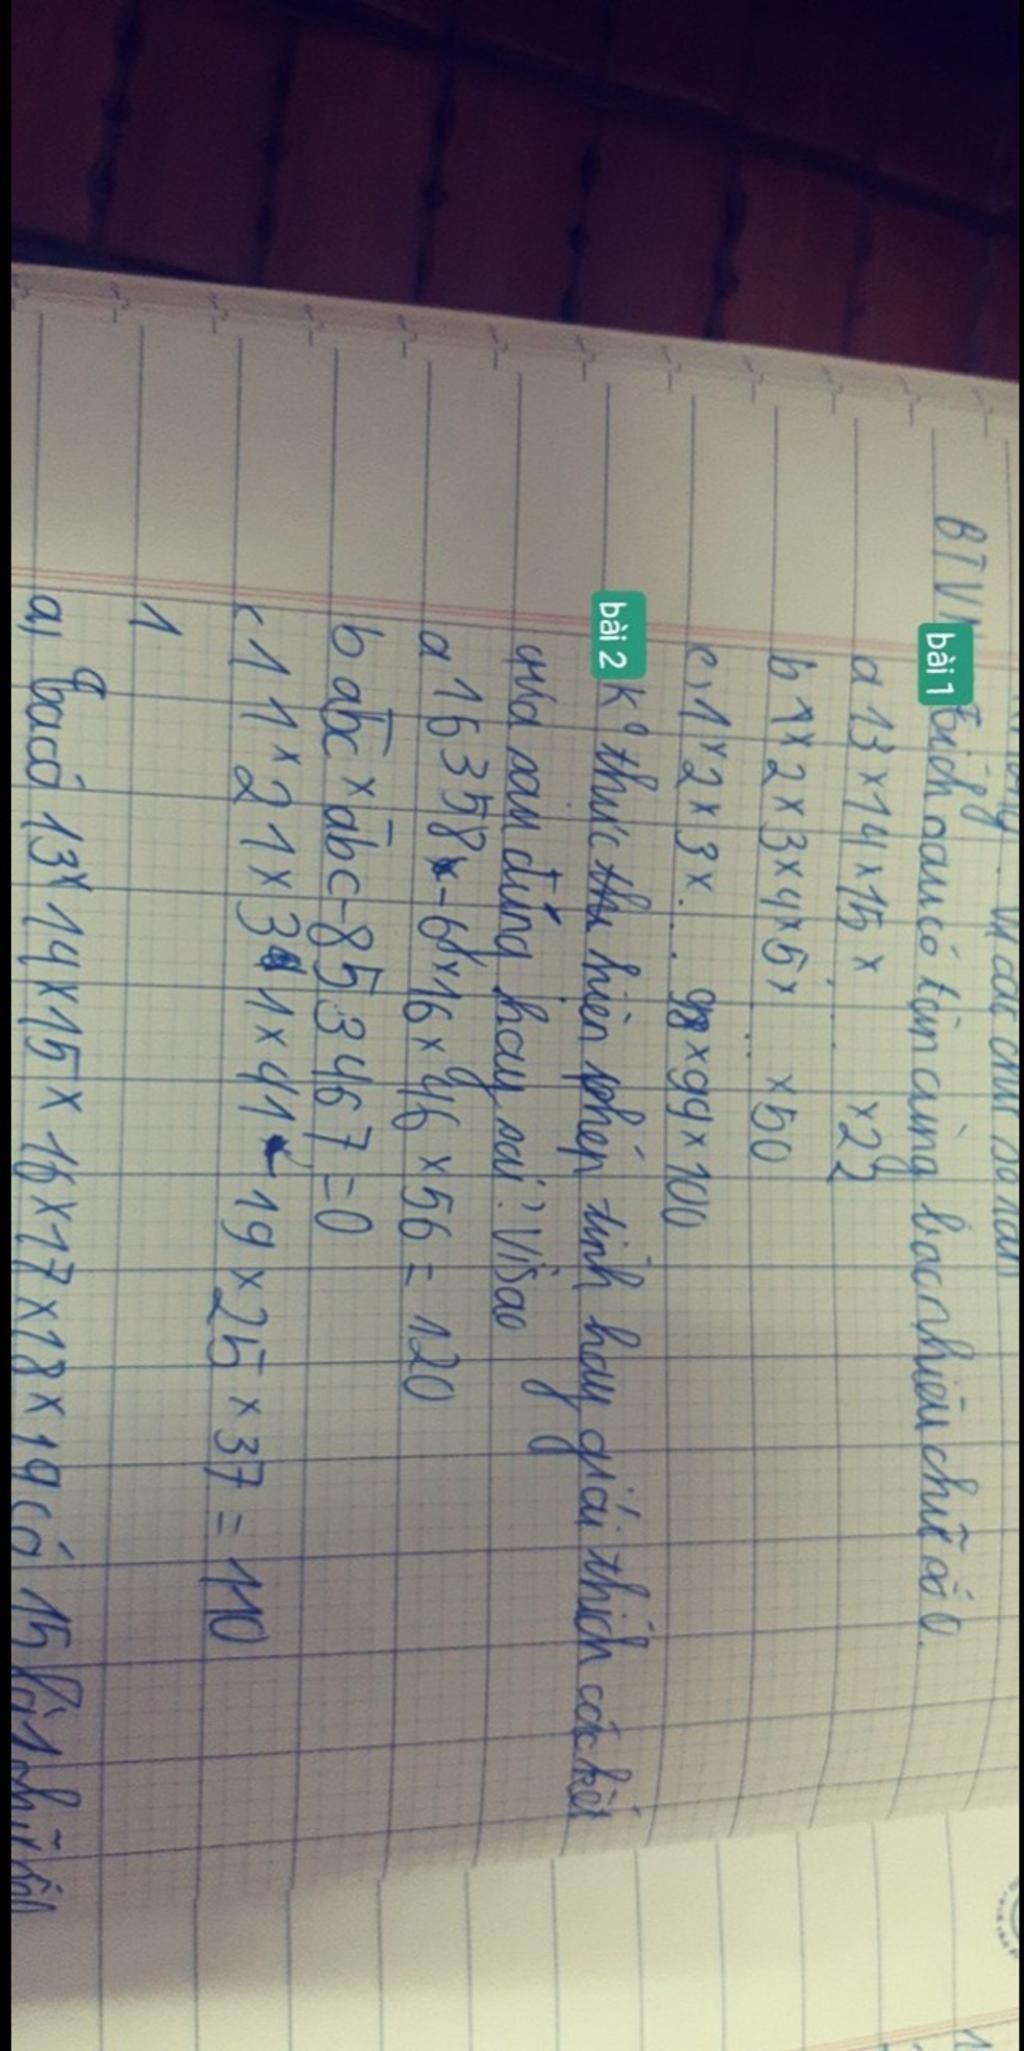 BTVN
bài 1 Tích sau có tận cùng bao nhiêu chữ số 0.
a 13 x 14 x 15 x .... x 22
b 1 x 2 x 3 x 4 x 5 x ... x 50
c, 1 x 2 x 3 x ... 98 x 99 x 100
bài 2 K⁰ thực hiện phép tính hay giải thích các kết
quả sau đúng hay sai? Vì sao
a 16358 - 6 x 16 x 46 x 56 = 120
b abc x abc - 853467 = 0
c 11 x 21 x 31 x 41 - 19 x 25 x 37 = 110
1
a, Ta có 13 x 14 x 15 x 16 x 17 x 18 x 19 có 15 là 1